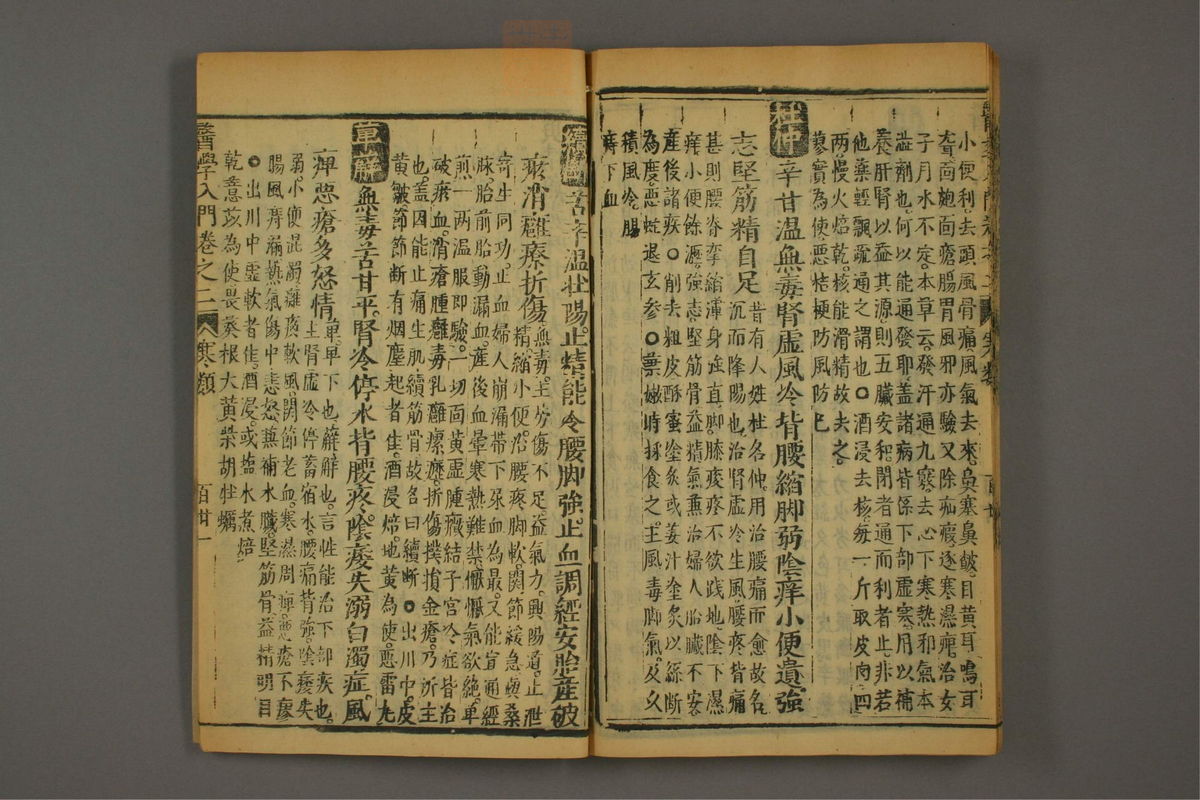 小便利去頭風骨痛風氣去來鼻塞鼻皶目黃耳鳴耳
聾齒
面瘡腸胃風邪亦驗又除疝瘕逐寒濕痺治女
子月水不定本草云發汗通九竅去心下寒熱和氣本
澁劑也何以能通發耶盖諸病皆係下部虛寒用以補
養肝腎以益其源則五臟安和閉者通而利者止非若
他藥輕飄疏通之謂也○酒浸去核每一斤取皮肉四
兩慢火焙乾核能滑精故去之
蓼實為使惡桔梗防風防己
杜仲 辛甘溫無毒腎虛風冷背腰縮脚弱陰痒小便遺強
志堅筋精自足
昔有人姓杜名仲用治腰痛而愈故名
沉而降陽也治腎虛冷生風腰疼背痛
甚則腰脊攣縮渾身強直脚膝痠疼不欲踐地陰下濕
痒小便餘瀝強志堅筋骨益精氣兼治婦人胎臟不安
產後諸疾○削去粗皮酥蜜塗炙或姜汁塗炙以絲斷
為度惡蛇退玄參○葉嫩時採食之主風毒脚氣及久
積風冷腸
痔下血
續斷 苦辛溫壯陽止精能令腰脚強止血調經安胎產破
瘀消癰瘰折傷
無毒主勞傷不足益氣力興陽道止泄
精縮小便治腰疼脚軟關節緩急與桑
寄生同功止血婦人崩漏帶下尿血為最又能宣通經
脉胎前胎動漏血產後血暈寒熱難禁懨懨氣欲絕單
煎一兩溫服即驗一切面黃虛腫癥結子宮冷症皆治
破瘀血消瘡腫癰毒乳癰瘰癧折傷撲損金瘡乃所主
也盖因能止痛生肌續筋骨故名曰續斷○出川中皮
黃皺節節斷有烟塵起者佳酒浸焙地黃為使惡雷丸
萆薢 無毒苦甘平腎冷停水背腰疼陰痿失溺白濁症風
痺惡瘡多怒情
萆卑下也薢解也言性能治下部疾也
主腎虛冷停蓄宿水腰痛背強陰痿失
溺小便混濁癱瘓軟風關節老血寒濕周痺惡瘡不瘳
腸風痔漏熱氣傷中恚怒兼補水臟堅筋骨益精明目
○出川中虛軟者佳酒浸或塩水煮焙
薏苡為使畏葵根大黃柴胡牡蠣
醫學入門卷之二
寒類
百卅一